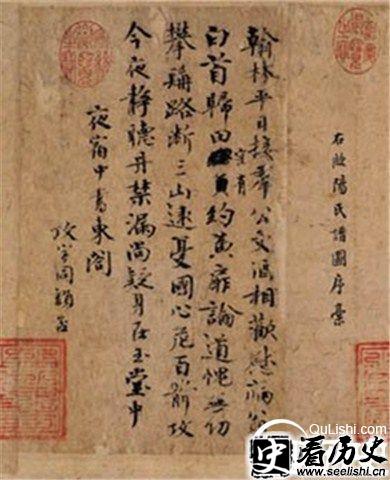 右歐陽氏譜圖序稾
翰林平日接羣公文酒相歡慰病翁
白首歸田空有約黃扉論道愧無功
攀髯路斷三山遠憂國心危百箭攻
今夜靜聽丹禁漏尚疑身在玉堂中
夜宿中書東閤
QuLishi.com
史看历史
www.seelishi.com